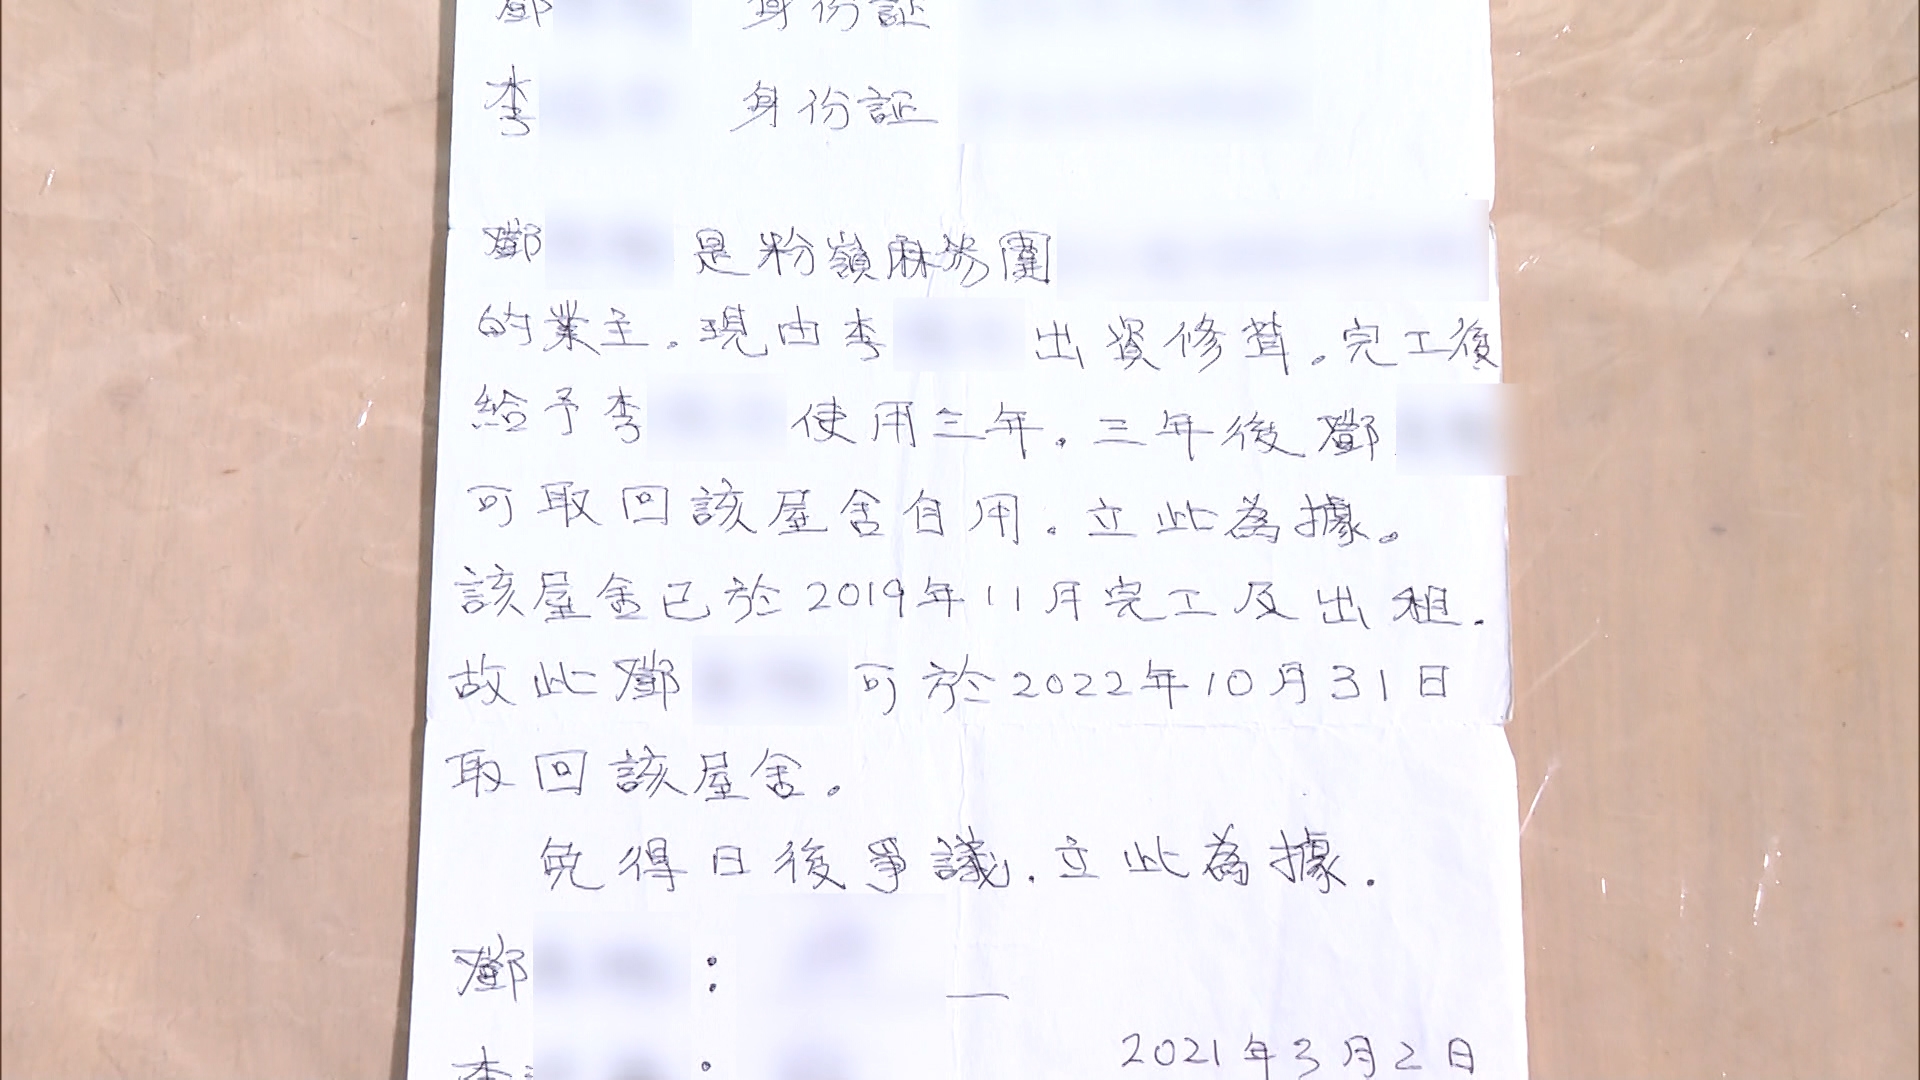 鄧 身份証
李 身份証
鄧 是粉嶺麻笏圍
的業主。現由李 出資修葺。完工後
給予李 使用三年。三年後鄧
可取回該屋舍自用。立此為據。
該屋舍已於2019年11月完工及出租.
故此鄧 可於2022年10月31日
取回該屋舍.
免得日後爭議.立此為據.
鄧 :
李 :
2021年3月2日